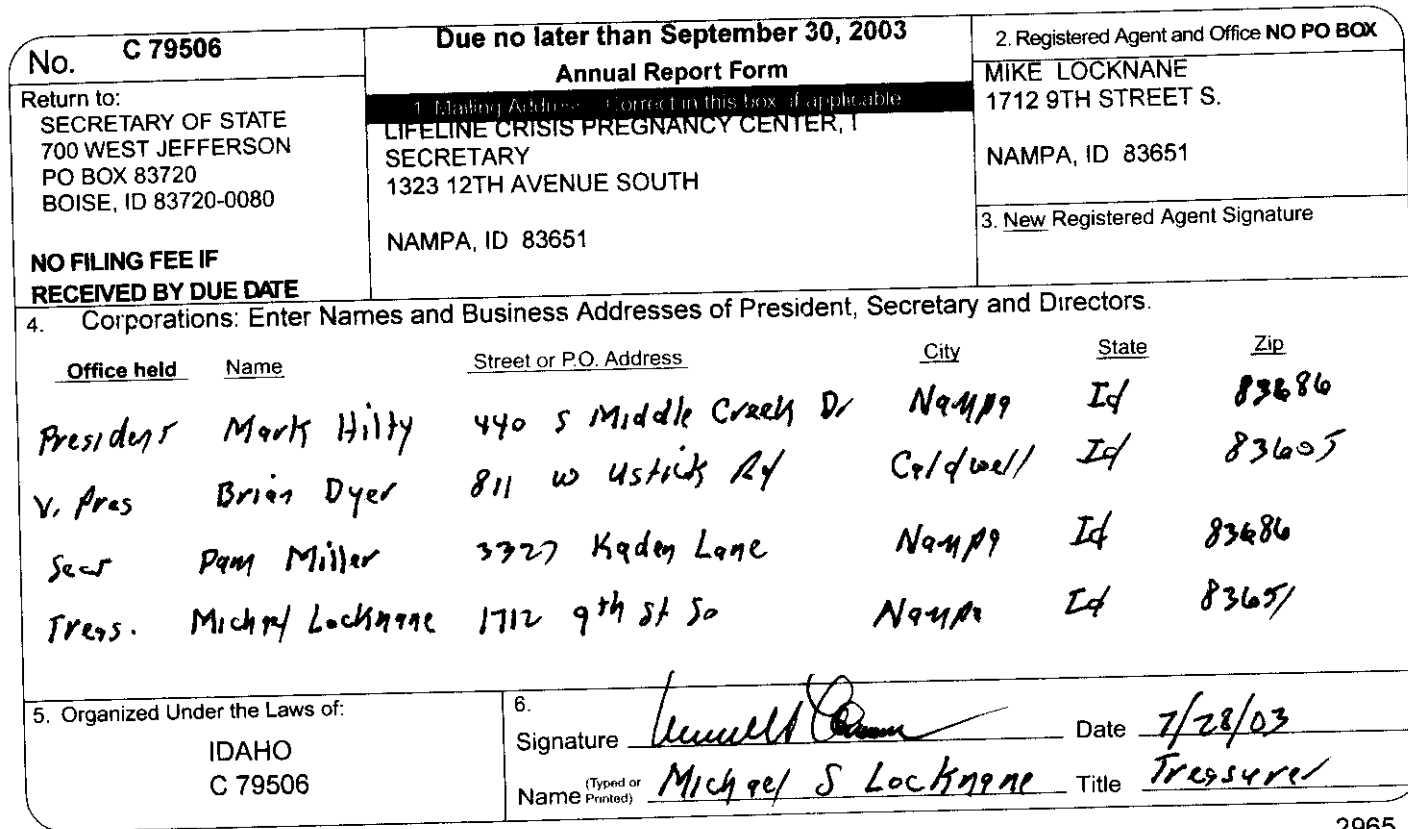 No. C 79506
Return to:
SECRETARY OF STATE
700 WEST JEFFERSON
PO BOX 83720
BOISE, ID 83720-0080
NO FILING FEE IF
RECEIVED BY DUE DATE
Due no later than September 30, 2003
Annual Report Form
1. Mailing Address: Correct in this box if applicable
LIFELINE CRISIS PREGNANCY CENTER, I
SECRETARY
1323 12TH AVENUE SOUTH
NAMPA, ID 83651
2. Registered Agent and Office NO PO BOX
MIKE LOCKNANE
1712 9TH STREET S.
NAMPA, ID 83651
3. New Registered Agent Signature
4. Corporations: Enter Names and Business Addresses of President, Secretary and Directors.
Office held Name Street or P.O. Address City State Zip
President Mark Hilty 440 S Middle Creek Dr Nampa Id 83686
V. Pres Brian Dyer 811 W Ustick Rd Caldwell Id 83605
Secr Pam Miller 3327 Kaden Lane Nampa Id 83686
Treas. Michael Locknane 1712 9th St So Nampa Id 83651
5. Organized Under the Laws of:
IDAHO
C 79506
6.
Signature Date 7/28/03
Name (Typed or Printed) Michael S Locknane Title Treasurer
2965